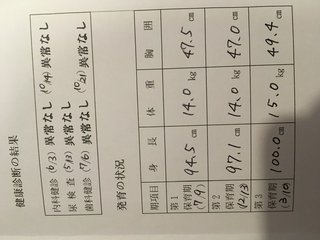 健康診断の結果
内科健診 (6/3) 異常なし (10/14) 異常なし
尿検査 (5/13) 異常なし (10/21) 異常なし
歯科健診 (7/6) 異常なし
発育の状況
期項目 身長 体重 胸囲
第1保育期 (7/9) 94.5 cm 14.0 kg 47.5 cm
第2保育期 (12/3) 97.1 cm 14.0 kg 47.0 cm
第3保育期 (3/10) 100.0 cm 15.0 kg 49.4 cm